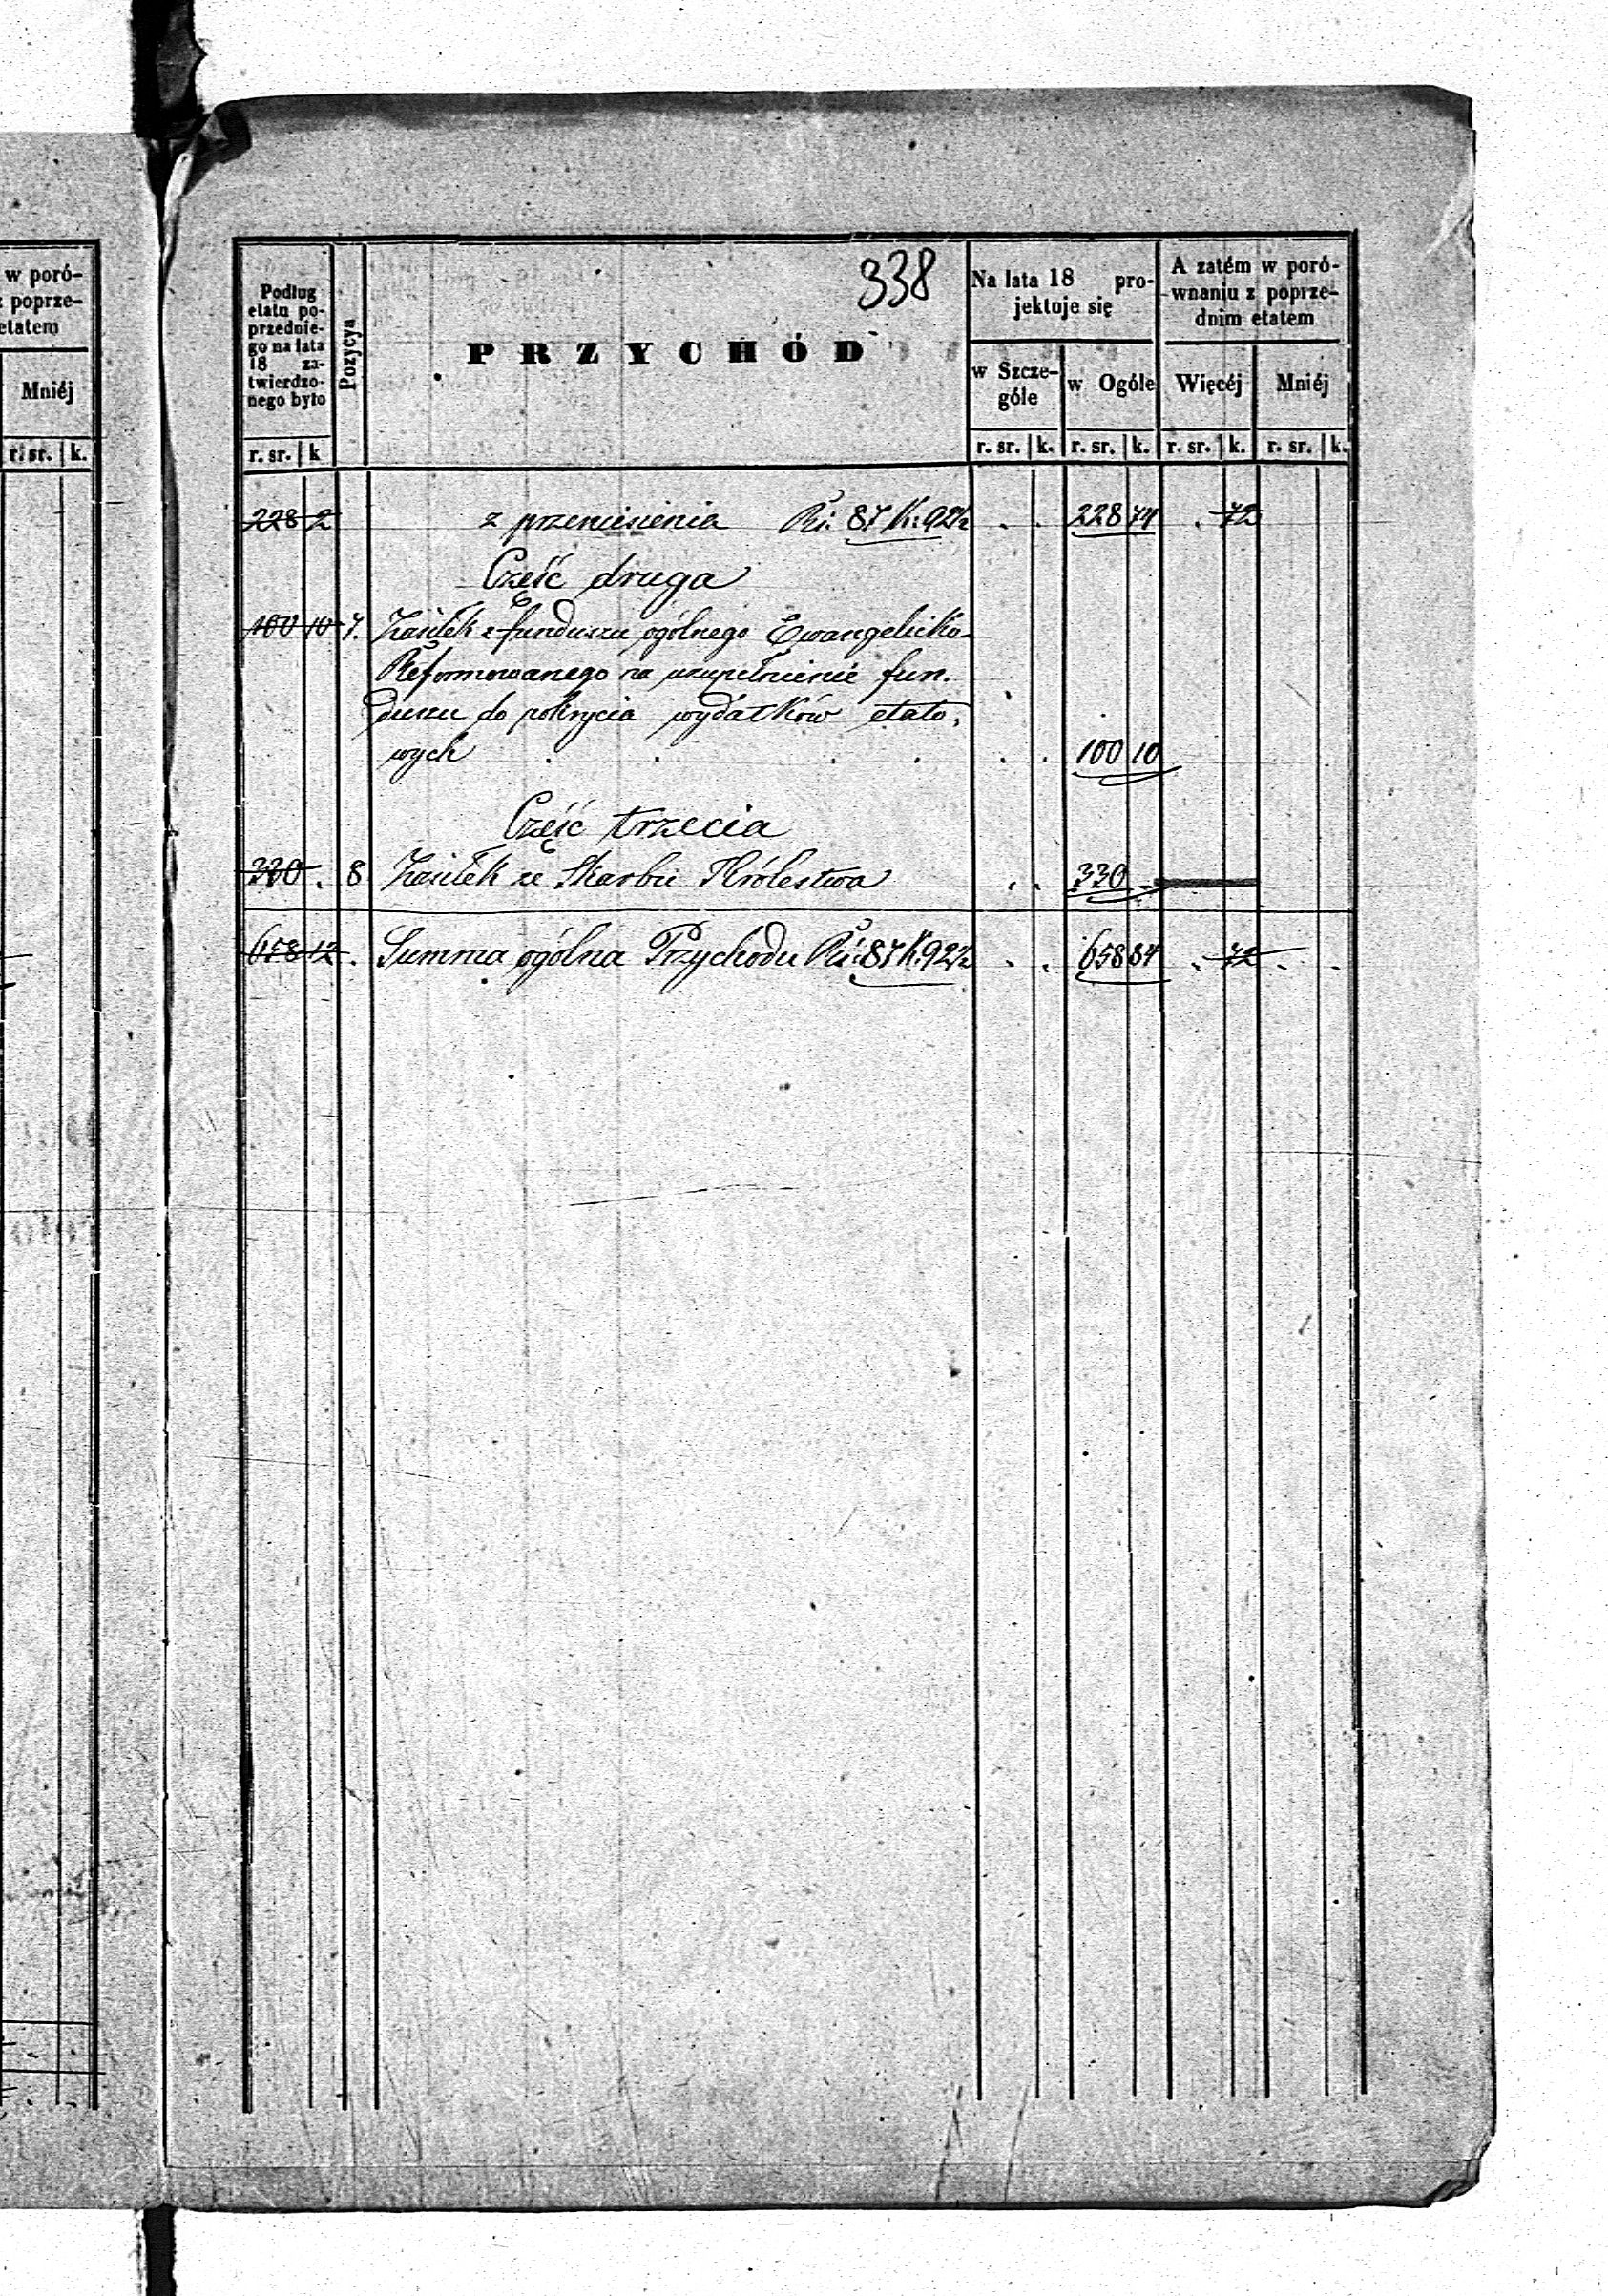 w poró-
z poprze-
etatem
Mniéj
r. sr. k.
338
Podług
etatu po-
przednie-
go na lata
18 za-
twierdzo-
nego było
r. sr. k
Pozycya
PRZYCHÓD
Na lata 18 pro-
jektuje się
w Szcze-
góle
w Ogóle
r. sr. k. r. sr. k.
A zatém w poró-
wnaniu z poprze-
dnim etatem
Więcéj Mniéj
r. sr. k. r. sr. k.
228 2 z przeniesienia Rs. 87 K. 92½ . . 228 74 . 72
Część druga
100 10 7. Zasiłek z funduszu ogólnego Ewangelicko-
Reformowanego na uzupełnienie fun-
duszu do pokrycia wydatków etato-
wych . . . . . . 100 10
Część trzecia
330 . 8 Zasiłek ze Skarbu Królestwa . . 330 -
658 12 . Summa ogólna Przychodu Rs. 87 K. 92½ . . 658 84 . 72 . .